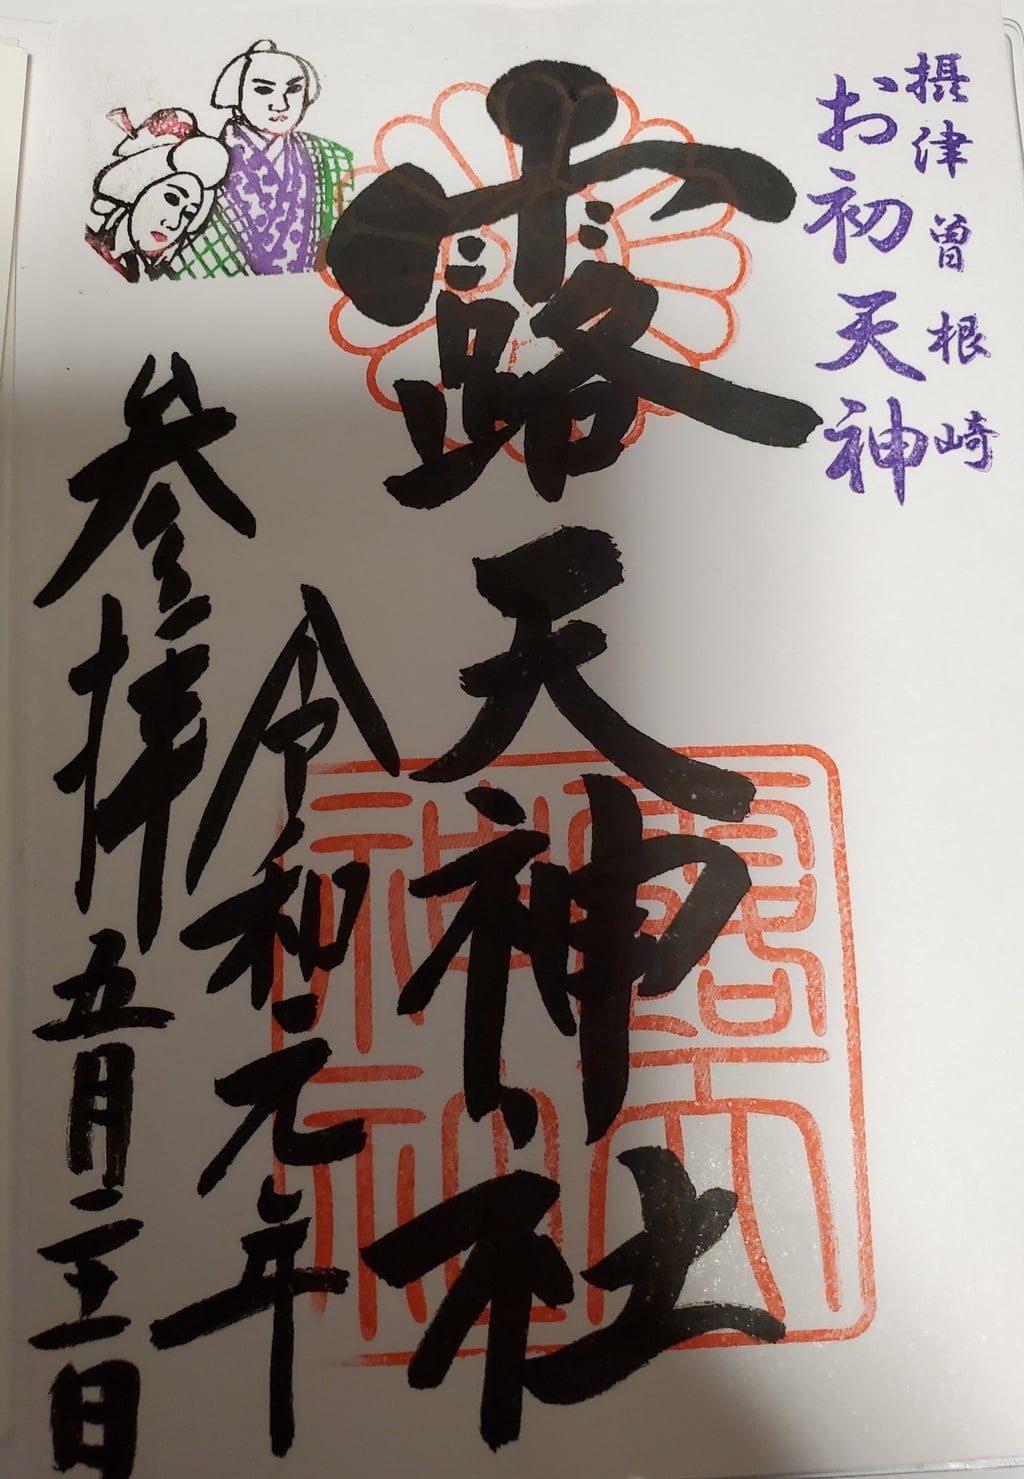 摂津曽根崎
お初天神
露天神社
露天
神社
令和元年
参拝五月